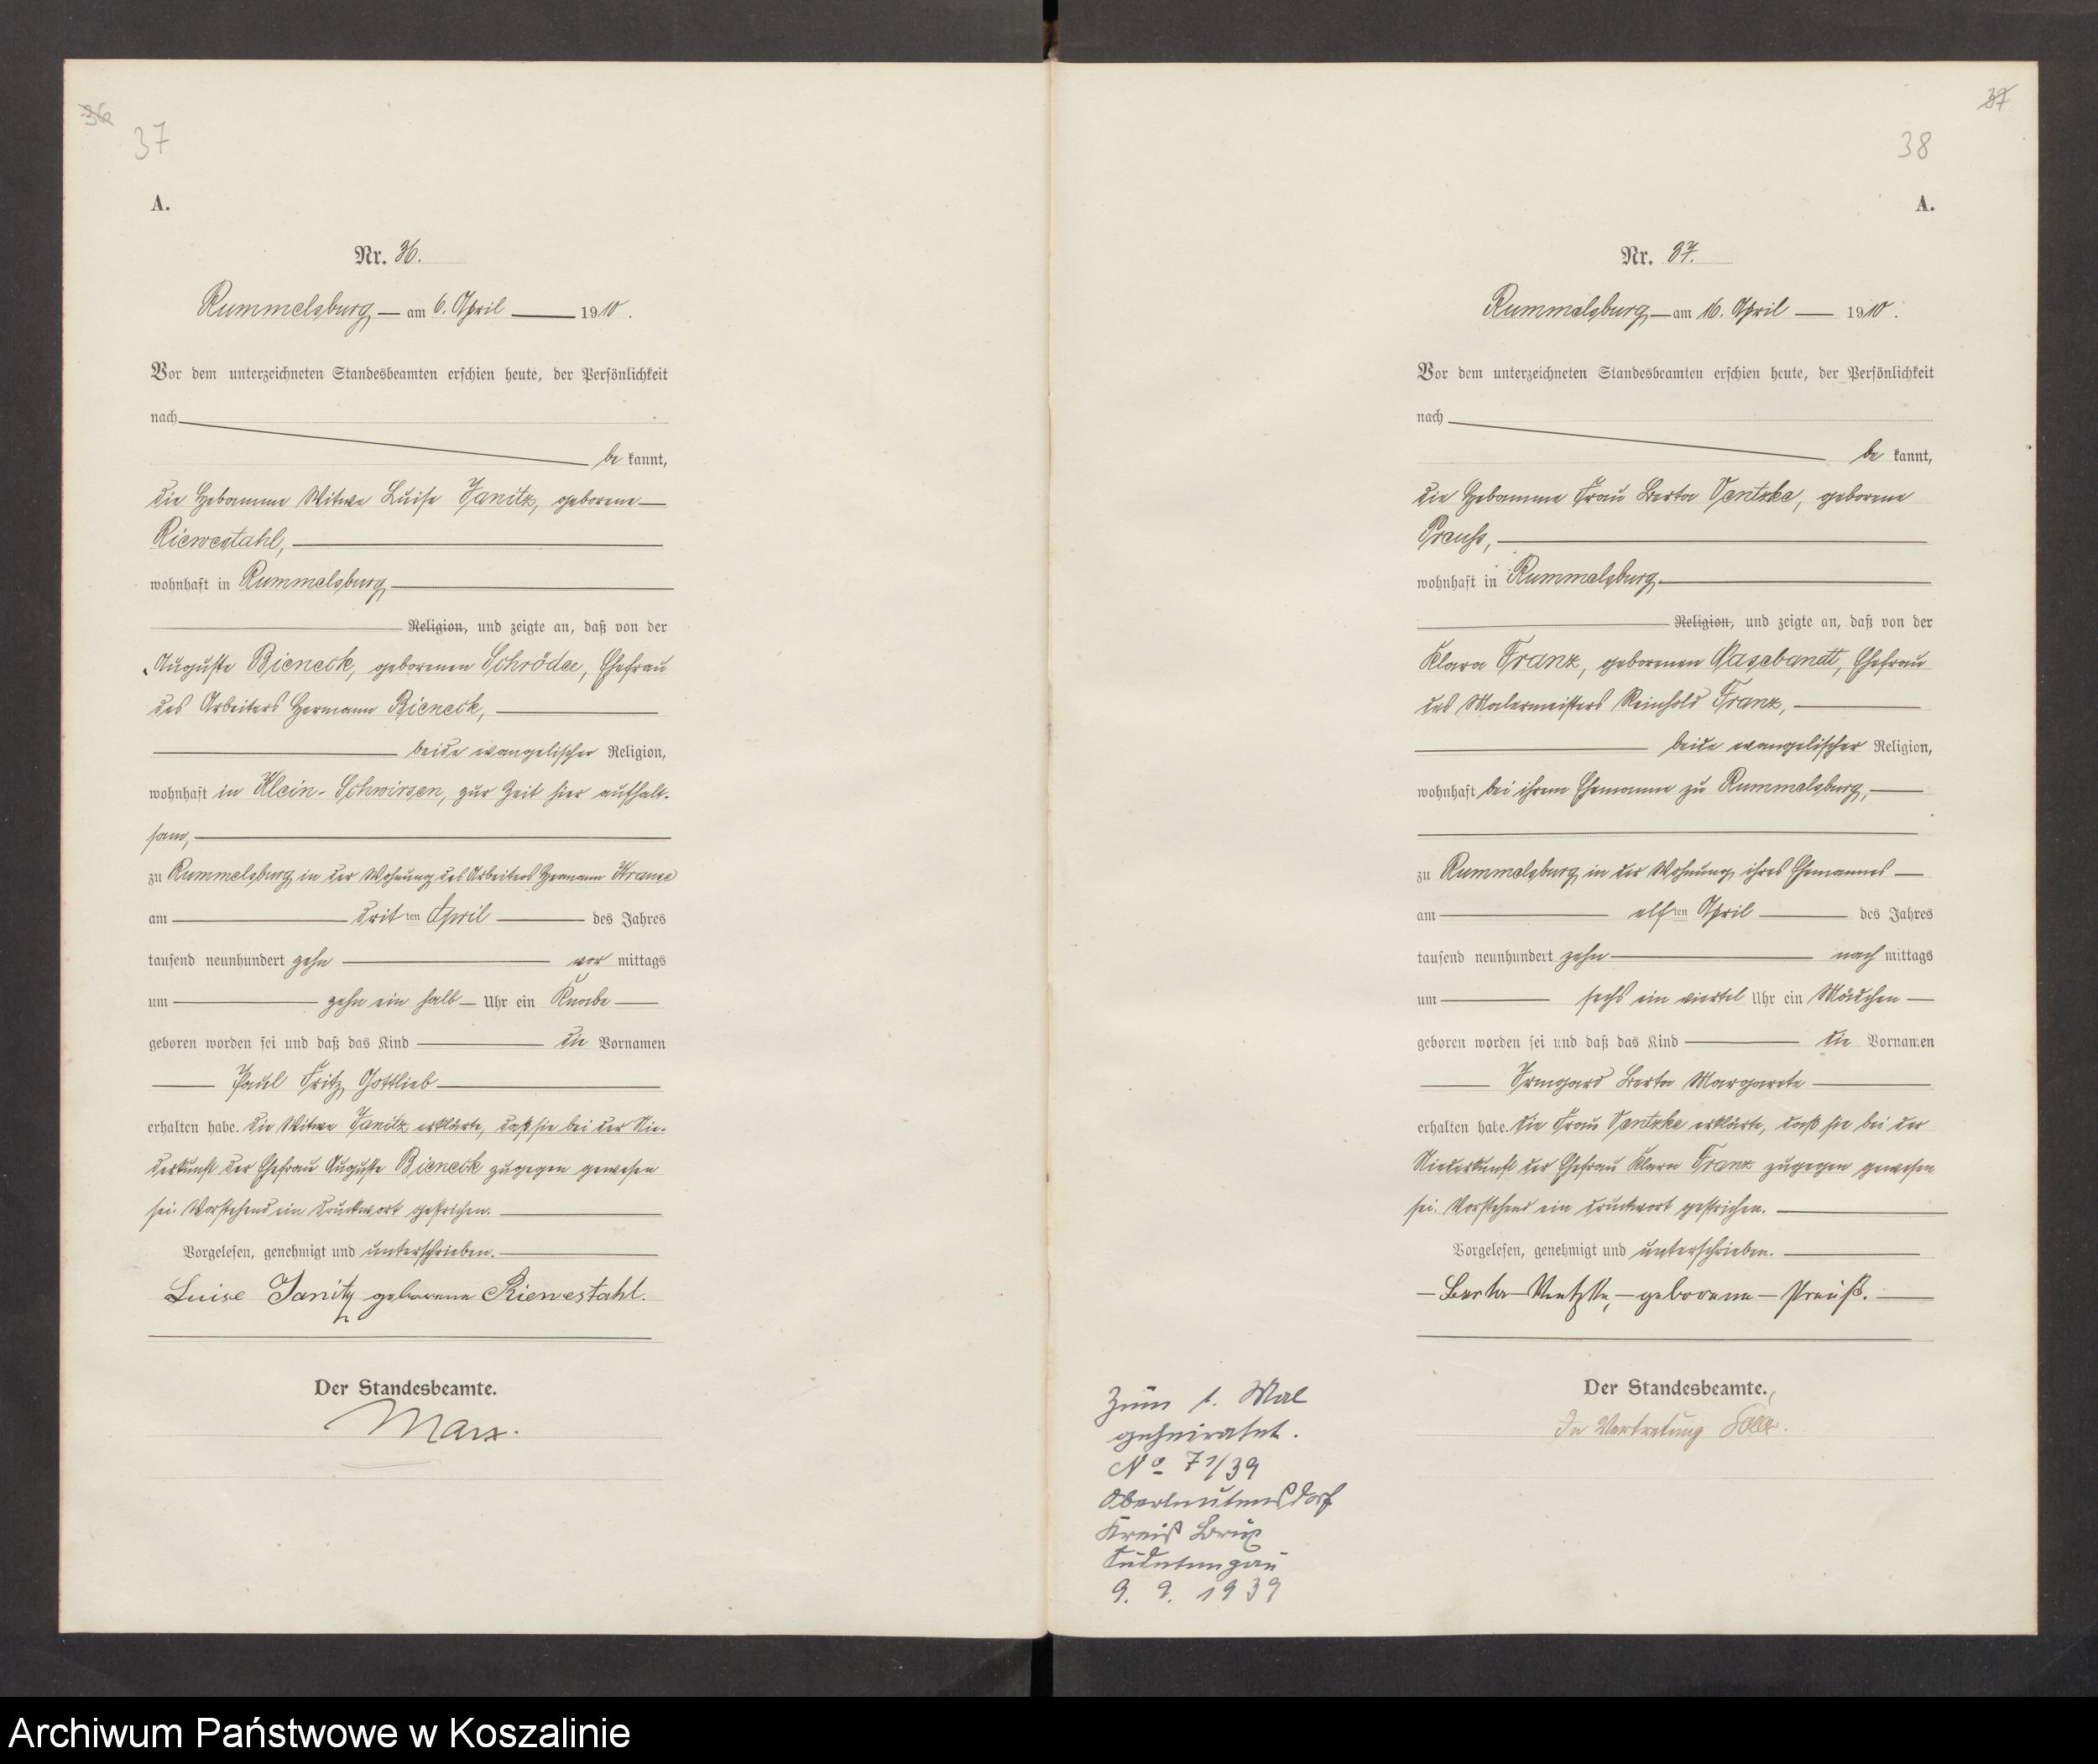 36
37
A.
Nr. 36.
Rummelsburg am 6. April 1910.
Vor dem unterzeichneten Standesbeamten erschien heute, der Persönlichkeit
nach
be kannt,
die Hebamme Witwe Luise Janitz, geborene
Riewestahl,
wohnhaft in Rummelsburg
Religion, und zeigte an, daß von der
Auguste Bieneck, geborenen Schröder, Ehefrau
des Arbeiters Hermann Bieneck,
beide evangelischer Religion,
wohnhaft in Klein-Schwirsen, zur Zeit hier aufhalt-
sam,
zu Rummelsburg in der Wohnung des Arbeiters Hermann Krause
am dritten April des Jahres
tausend neunhundert zehn vor mittags
um zehn ein halb Uhr ein Knabe
geboren worden sei und daß das Kind die Vornamen
Paul Fritz Gottlieb
erhalten habe. Die Witwe Janitz erklärte, daß sie bei der Nie-
derkunft der Ehefrau Auguste Bieneck zugegen gewesen
sei. Vorstehend ein Druckwort gestrichen.
Vorgelesen, genehmigt und unterschrieben.
Luise Janitz geborene Riewestahl.
Der Standesbeamte.
Marx.
37
38
A.
Nr. 37.
Rummelsburg am 16. April 1910.
Vor dem unterzeichneten Standesbeamten erschien heute, der Persönlichkeit
nach
be kannt,
die Hebamme Frau Berta Ventzke, geborene
Preuß,
wohnhaft in Rummelsburg
Religion, und zeigte an, daß von der
Klara Franz, geborenen Pasebandt, Ehefrau
des Malermeisters Reinhold Franz,
beide evangelischer Religion,
wohnhaft bei ihrem Ehemanne zu Rummelsburg,
zu Rummelsburg in der Wohnung ihres Ehemannes
am elften April des Jahres
tausend neunhundert zehn nach mittags
um sechs ein viertel Uhr ein Mädchen
geboren worden sei und daß das Kind die Vornamen
Irmgard Berta Margarete
erhalten habe. Die Frau Ventzke erklärte, daß sie bei der
Niederkunft der Ehefrau Klara Franz zugegen gewesen
sei. Vorstehend ein Druckwort gestrichen.
Vorgelesen, genehmigt und unterschrieben.
Berta Ventzke, geborene Preuß.
Der Standesbeamte.
In Vertretung
Zum 1. Mal
geheiratet.
No 71/39
Oberleutensdorf
Kreis Brüx
Sudetengau
9. 9. 1939
Archiwum Państwowe w Koszalinie